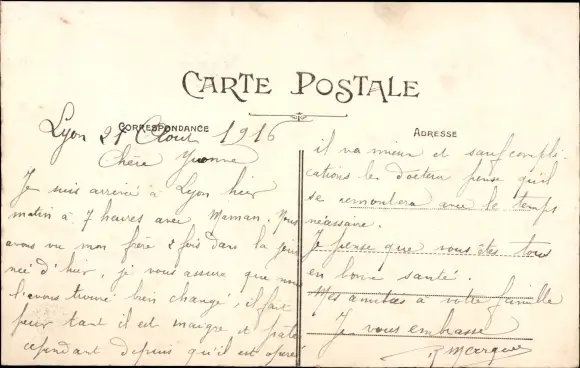 CARTE POSTALE
CORRESPONDANCE
ADRESSE
Lyon 21 Aout 1916
Chère Yvonne
Je suis arrivé à Lyon hier
matin à 7 heures avec Maman. Nous
avons vu mon frère 2 fois dans la jour
née d'hier, je vous assure que nous
l'avons trouvé bien changé, il fait
peur tant il est maigre et pâle
cependant depuis qu'il est opéré
il va mieux et sauf compli-
cations le docteur pense qu'il
se remontera avec le temps
nécessaire.
Je pense que vous êtes tous
en bonne santé.
Mes amitiés à votre famille
Je vous embrasse